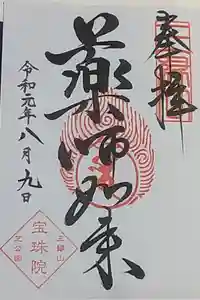 奉拝
薬師如来
令和元年八月九日
三縁山
宝珠院
芝公園